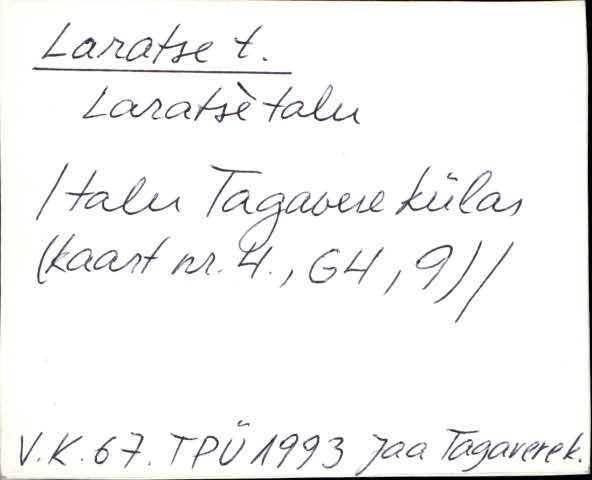 Laratse t.
Laratsè talu
/talu Tagavere külas
(kaart nr. 4., G4, 9)/
V.K. 67. TPÜ 1993 Jaa Tagavere k.